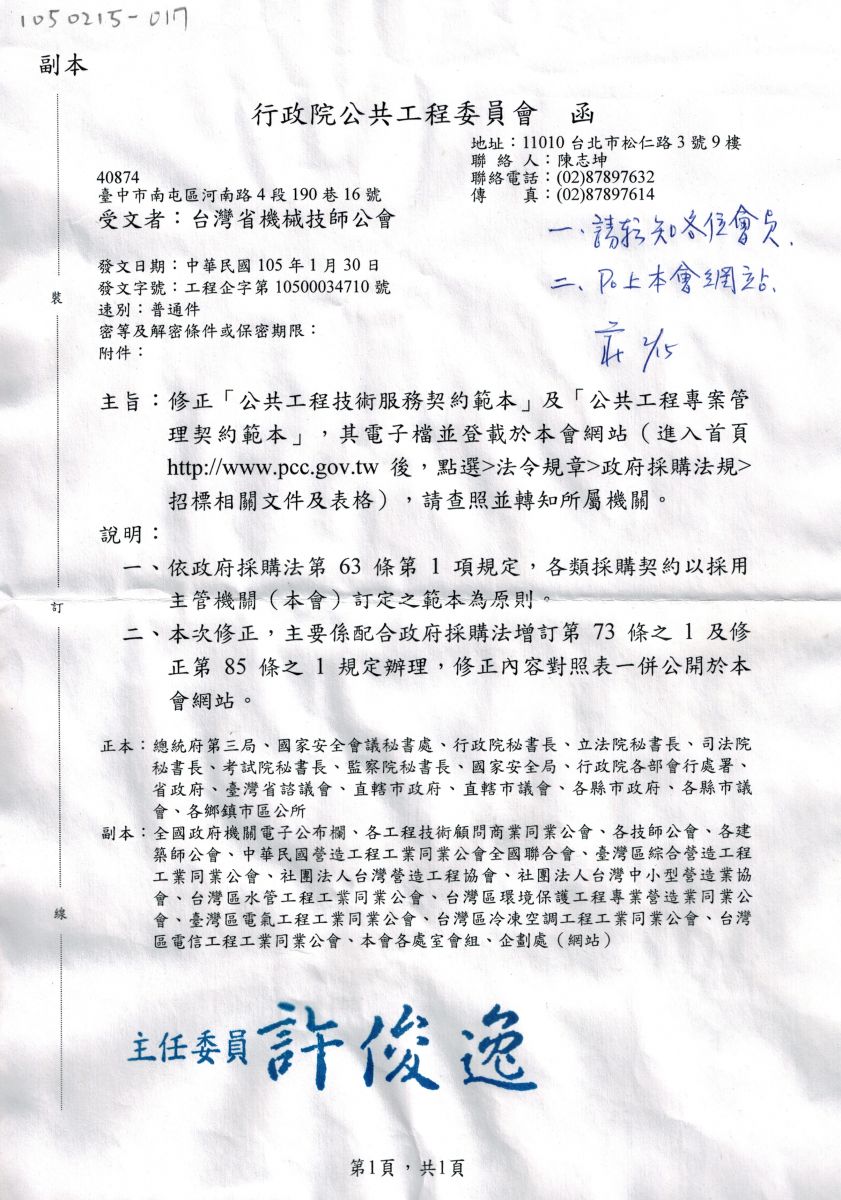 1050215-017
副本
行政院公共工程委員會　函
地址：11010 台北市松仁路 3 號 9 樓
聯 絡 人：陳志坤
聯絡電話：(02)87897632
傳　　真：(02)87897614
40874
臺中市南屯區河南路 4 段 190 巷 16 號
受文者：台灣省機械技師公會
一、請轉知各位會員.
二、Po上本會網站.
莊 2/15
發文日期：中華民國 105 年 1 月 30 日
發文字號：工程企字第 10500034710 號
速別：普通件
密等及解密條件或保密期限：
附件：
裝
訂
線
主旨：修正「公共工程技術服務契約範本」及「公共工程專案管
理契約範本」，其電子檔並登載於本會網站（進入首頁
http://www.pcc.gov.tw 後，點選>法令規章>政府採購法規>
招標相關文件及表格），請查照並轉知所屬機關。
說明：
一、依政府採購法第 63 條第 1 項規定，各類採購契約以採用
主管機關（本會）訂定之範本為原則。
二、本次修正，主要係配合政府採購法增訂第 73 條之 1 及修
正第 85 條之 1 規定辦理，修正內容對照表一併公開於本
會網站。
正本：總統府第三局、國家安全會議秘書處、行政院秘書長、立法院秘書長、司法院
秘書長、考試院秘書長、監察院秘書長、國家安全局、行政院各部會行處署、
省政府、臺灣省諮議會、直轄市政府、直轄市議會、各縣市政府、各縣市議
會、各鄉鎮市區公所
副本：全國政府機關電子公布欄、各工程技術顧問商業同業公會、各技師公會、各建
築師公會、中華民國營造工程工業同業公會全國聯合會、臺灣區綜合營造工程
工業同業公會、社團法人台灣營造工程協會、社團法人台灣中小型營造業協
會、台灣區水管工程工業同業公會、台灣區環境保護工程專業營造業同業公
會、臺灣區電氣工程工業同業公會、台灣區冷凍空調工程工業同業公會、台灣
區電信工程工業同業公會、本會各處室會組、企劃處（網站）
主任委員 許俊逸
第1頁，共1頁